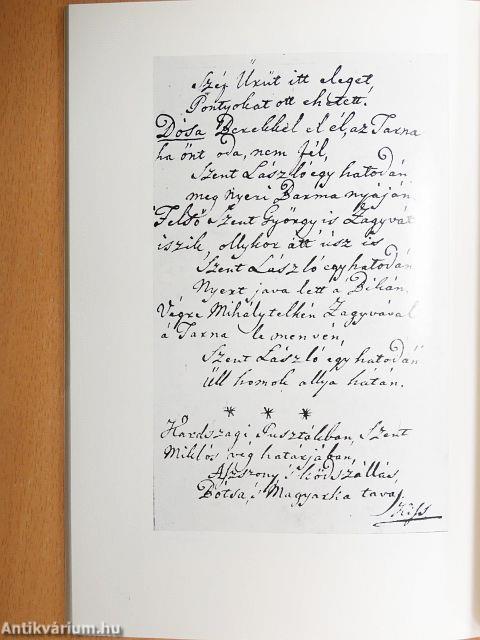 Szép Ürüt itt eleget,
Pontyokat ott ehetett.
Dósa Berekkel él, az Tarna
ha önt oda, nem fél,
Szent László egy hatodán
meg nyeri Barma nyáján.
Felső Szent György is Zagyvát
iszik, ollykor átt úsz is
Szent László egy hatodán
Nyert java lett á Bikán.
Végre Mihálytelkén Zagyvával
á Tarna le menvén,
Szent László egy hatodán
Üll homok allya hátán.
* * *
Kardszagi Pusztákban, Szent
Miklós vég határjában,
Aszszony, 's Ködszállás,
Bótsa, 's Magyarka tava,
Kiss
Antikvárium.hu